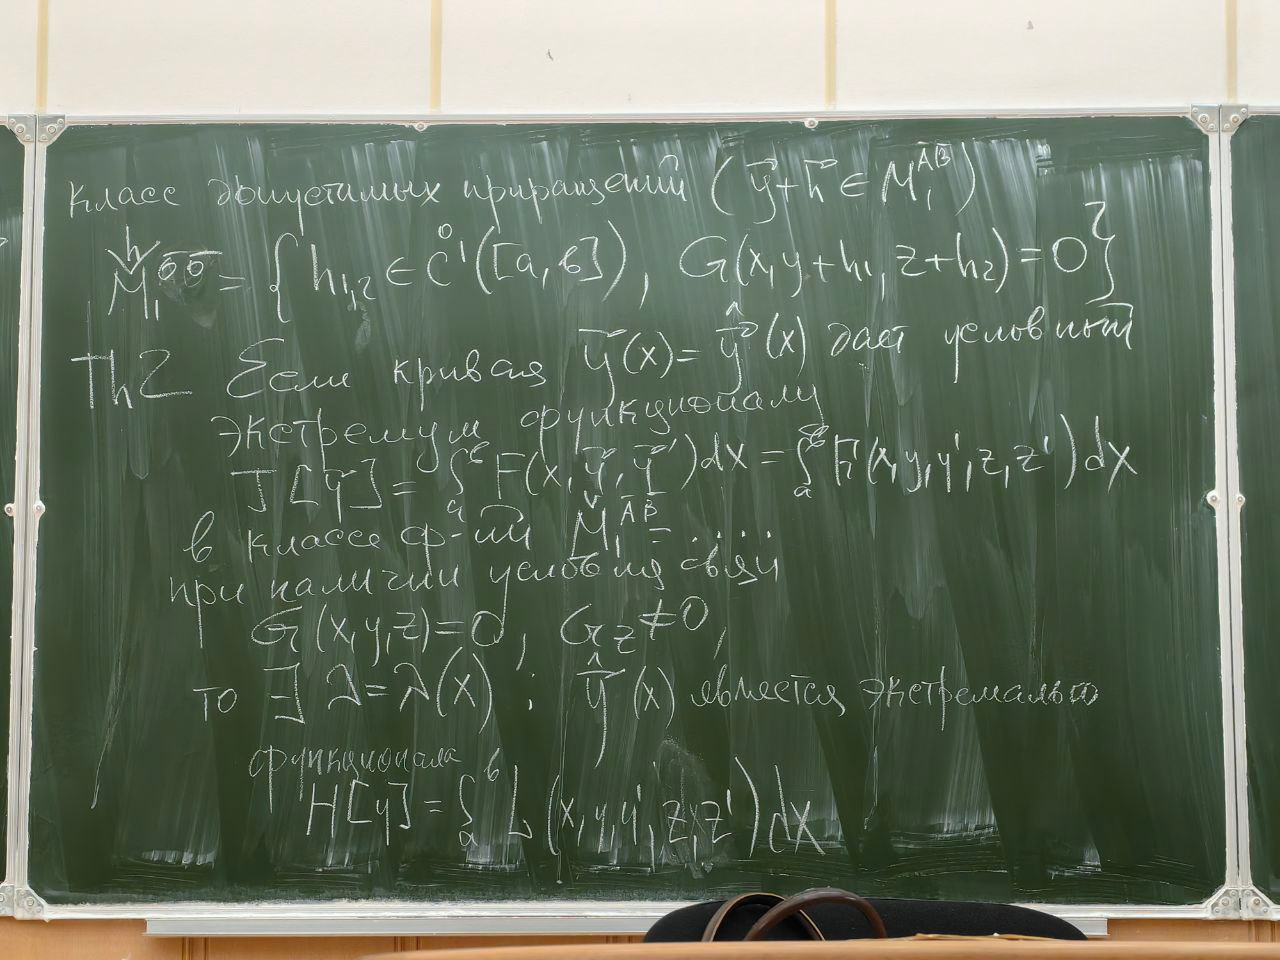 класс допустимых приращений (y⃗+h⃗ ∈ M₁^{AB})
M₁^{h, 0̄0̄} = { h₁,₂ ∈ C̊¹([a,в]), G(x,y+h₁,z+h₂)=0 }
Th2 Если кривая y⃗(x)=ŷ⃗(x) дает условный
экстремум функционалу
J[y⃗] = ∫ₐᵇ F(x,y⃗,y⃗')dx = ∫ₐᵇ F(x,y,y',z,z')dx
в классе ф-ий M₁^{AB} = .....
при наличии условия связи
G(x,y,z)=0, G_z≠0,
то ∃ λ=λ(x) : ŷ⃗(x) является экстремалью
функционала
H[y] = ∫ₐᵇ L(x,y,y',z,z')dx